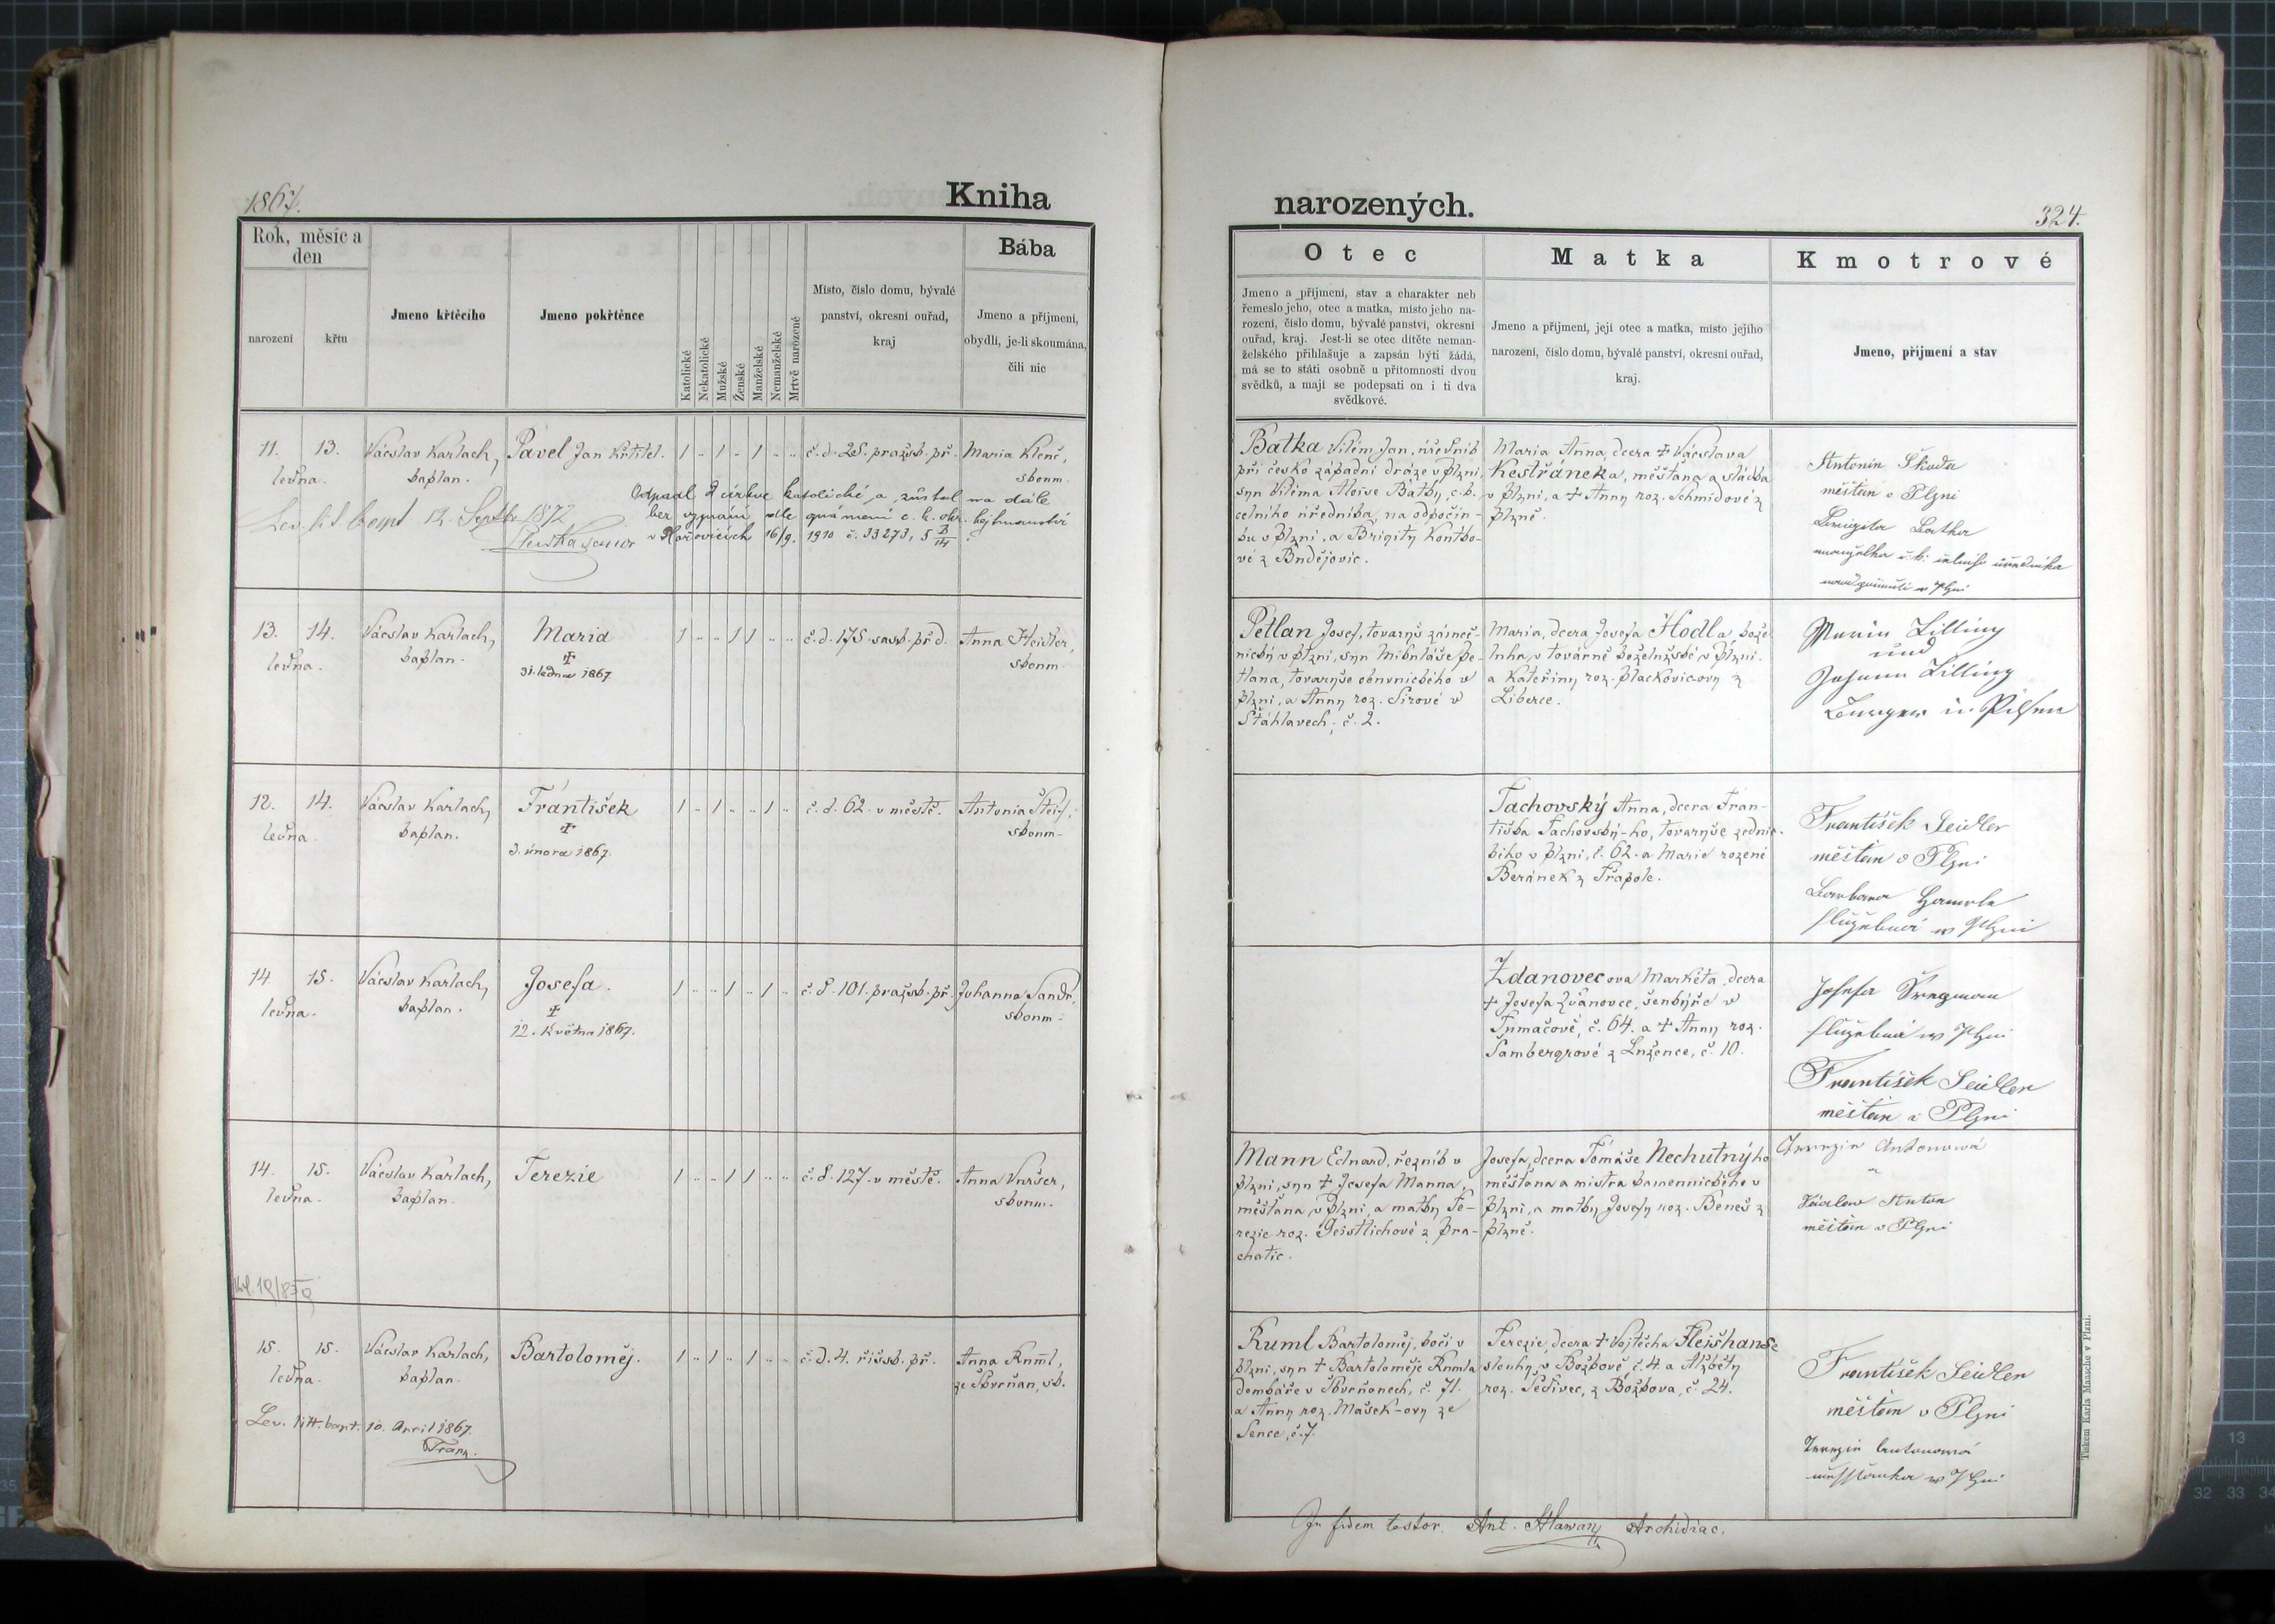 1867.
Kniha
Rok, měsíc a
den
narození
křtu
Jmeno křtěcího
Jmeno pokřtěnce
Katolické
Nekatolické
Mužské
Ženské
Manželské
Nemanželské
Mrtvě narozené
Místo, číslo domu, bývalé
panství, okresní ouřad,
kraj
Bába
Jmeno a příjmení,
obydlí, je-li skoumána,
čili nic
11. 13. Vácslav Karlach, Pavel Jan Křtitel. 1 .. 1 .. 1 .. .. č. d. 25. pražsk. př. Maria Klenč,
ledna. kaplan. skoum.
Odpadl z církve katolické a zůstal na dále
bez vyznání dle oznámení c. k. okr. hejtmanství
v Hořovicích 16/9. 1910 č. 33273,
12 Septbr 1872
13. 14. Vácslav Karlach, Maria 1 .. .. 1 1 .. .. č. d. 175. sask. př d. Anna Heidler,
ledna. kaplan. ✝ skoum.
31. ledna 1867
12. 14. Vácslav Karlach, František 1 .. 1 .. .. 1 .. č. d. 62. v městě. Antonia
ledna. kaplan. ✝ skoum.
3. února 1867.
14 15. Vácslav Karlach, Josefa. 1 .. .. 1 .. 1 .. č. d. 101. pražsk. př. Johanna Sandr,
ledna. kaplan. ✝ skoum.
12. Května 1867.
14. 15. Vácslav Karlach, Terezie 1 .. .. 1 1 .. .. č. d. 127. v městě. Anna Vuršer,
ledna. kaplan. skoum.
15. 15. Vácslav Karlach, Bartoloměj. 1 .. 1 .. 1 .. .. č. d. 4. říšsk. př. Anna Kuml,
ledna. kaplan. ze Škvrňan, sk.
Lev. litt. bapt. 10. April 1867.
Franz.
narozených.
324.
Otec
Jmeno a příjmení, stav a charakter neb
řemeslo jeho, otec a matka, místo jeho na-
rození, číslo domu, bývalé panství, okresní
ouřad, kraj. Jest-li se otec dítěte neman-
želského přihlašuje a zapsán býti žádá,
má se to státi osobně u přítomnosti dvou
svědků, a mají se podepsati on i ti dva
svědkové.
Matka
Jmeno a příjmení, její otec a matka, místo jejího
narození, číslo domu, bývalé panství, okresní ouřad,
kraj.
Kmotrové
Jmeno, příjmení a stav
Batka Vilém Jan, úředník
při česko západní dráze v Plzni,
syn Viléma Aloise Batky, c. k.
celního úředníka, na odpočin-
ku v Plzni, a Brigity
vé z Budějovic.
Maria Anna, dcera ✝ Vácslava
Kestřáneka, měšťana a sládka
v Plzni, a ✝ Anny roz. Schmidové z
Plzně.
Antonín Škoda
měšťan v Plzni
Brigita Batka
manželka c. k. celního úředníka
v Plzni
Petlan Josef, tovaryš zámeč-
nický v Plzni, syn Mikuláše Pe-
tlana, tovaryše obuvnického v
Plzni, a Anny roz. Sirové v
Šťáhlavech, č. 2.
Maria, dcera Josefa Hodla, kože-
luha, v továrně koželužské v Plzni.
a Kateřiny roz. Plackovicovy z
Liberce.
Maria Lilling
und
Johann Lilling
Burger in Pilsen
Tachovský Anna, dcera Fran-
tiška Tachovský-ho, tovaryše zednic-
kého v Plzni, č. 62. a Marie rozené
Beránek z Třapole.
František Seidler
měšťan v Plzni
Barbara
služebná w Plzni
Zdanovec ova Markéta, dcera
✝ Josefa Zdanovce, šenkýře v
Tlumačově, č. 64. a ✝ Anny roz.
Šambergrové z Lužence, č. 10.
Josefa
služebná w Plzni
František Seidler
měšťan v Plzni
Mann Eduard, řezník v
Plzni, syn ✝ Josefa Manna,
měšťana v Plzni, a matky Te-
rezie roz. Geistlichové z Pra-
chatic.
Josefa, dcera Tomáše Nechutnýho
měšťana a mistra kamennického v
Plzni, a matky Josefy roz. Beneš z
Plzně.
Terezie Antonowá
Václav Anton
měšťan v Plzni
Kuml Bartoloměj, kočí v
Plzni, syn ✝ Bartoloměje Kumla
domkáře v Škvrňanech, č. 71.
a Anny roz. Mašek-ovy ze
Sence, č. 7.
Terezie, dcera ✝ Vojtěcha Flejšhanse
slouhy, v Božkově, č. 4. a Alžběty
roz. Šedivec, z Božkova, č. 24.
František Seidler
měšťan v Plzni
Terezie Antonowá
měšťanka w Plzni
Tiskem Karla Maasche v Plzni.
In fidem testor. Ant. Hlawan Archidiac.